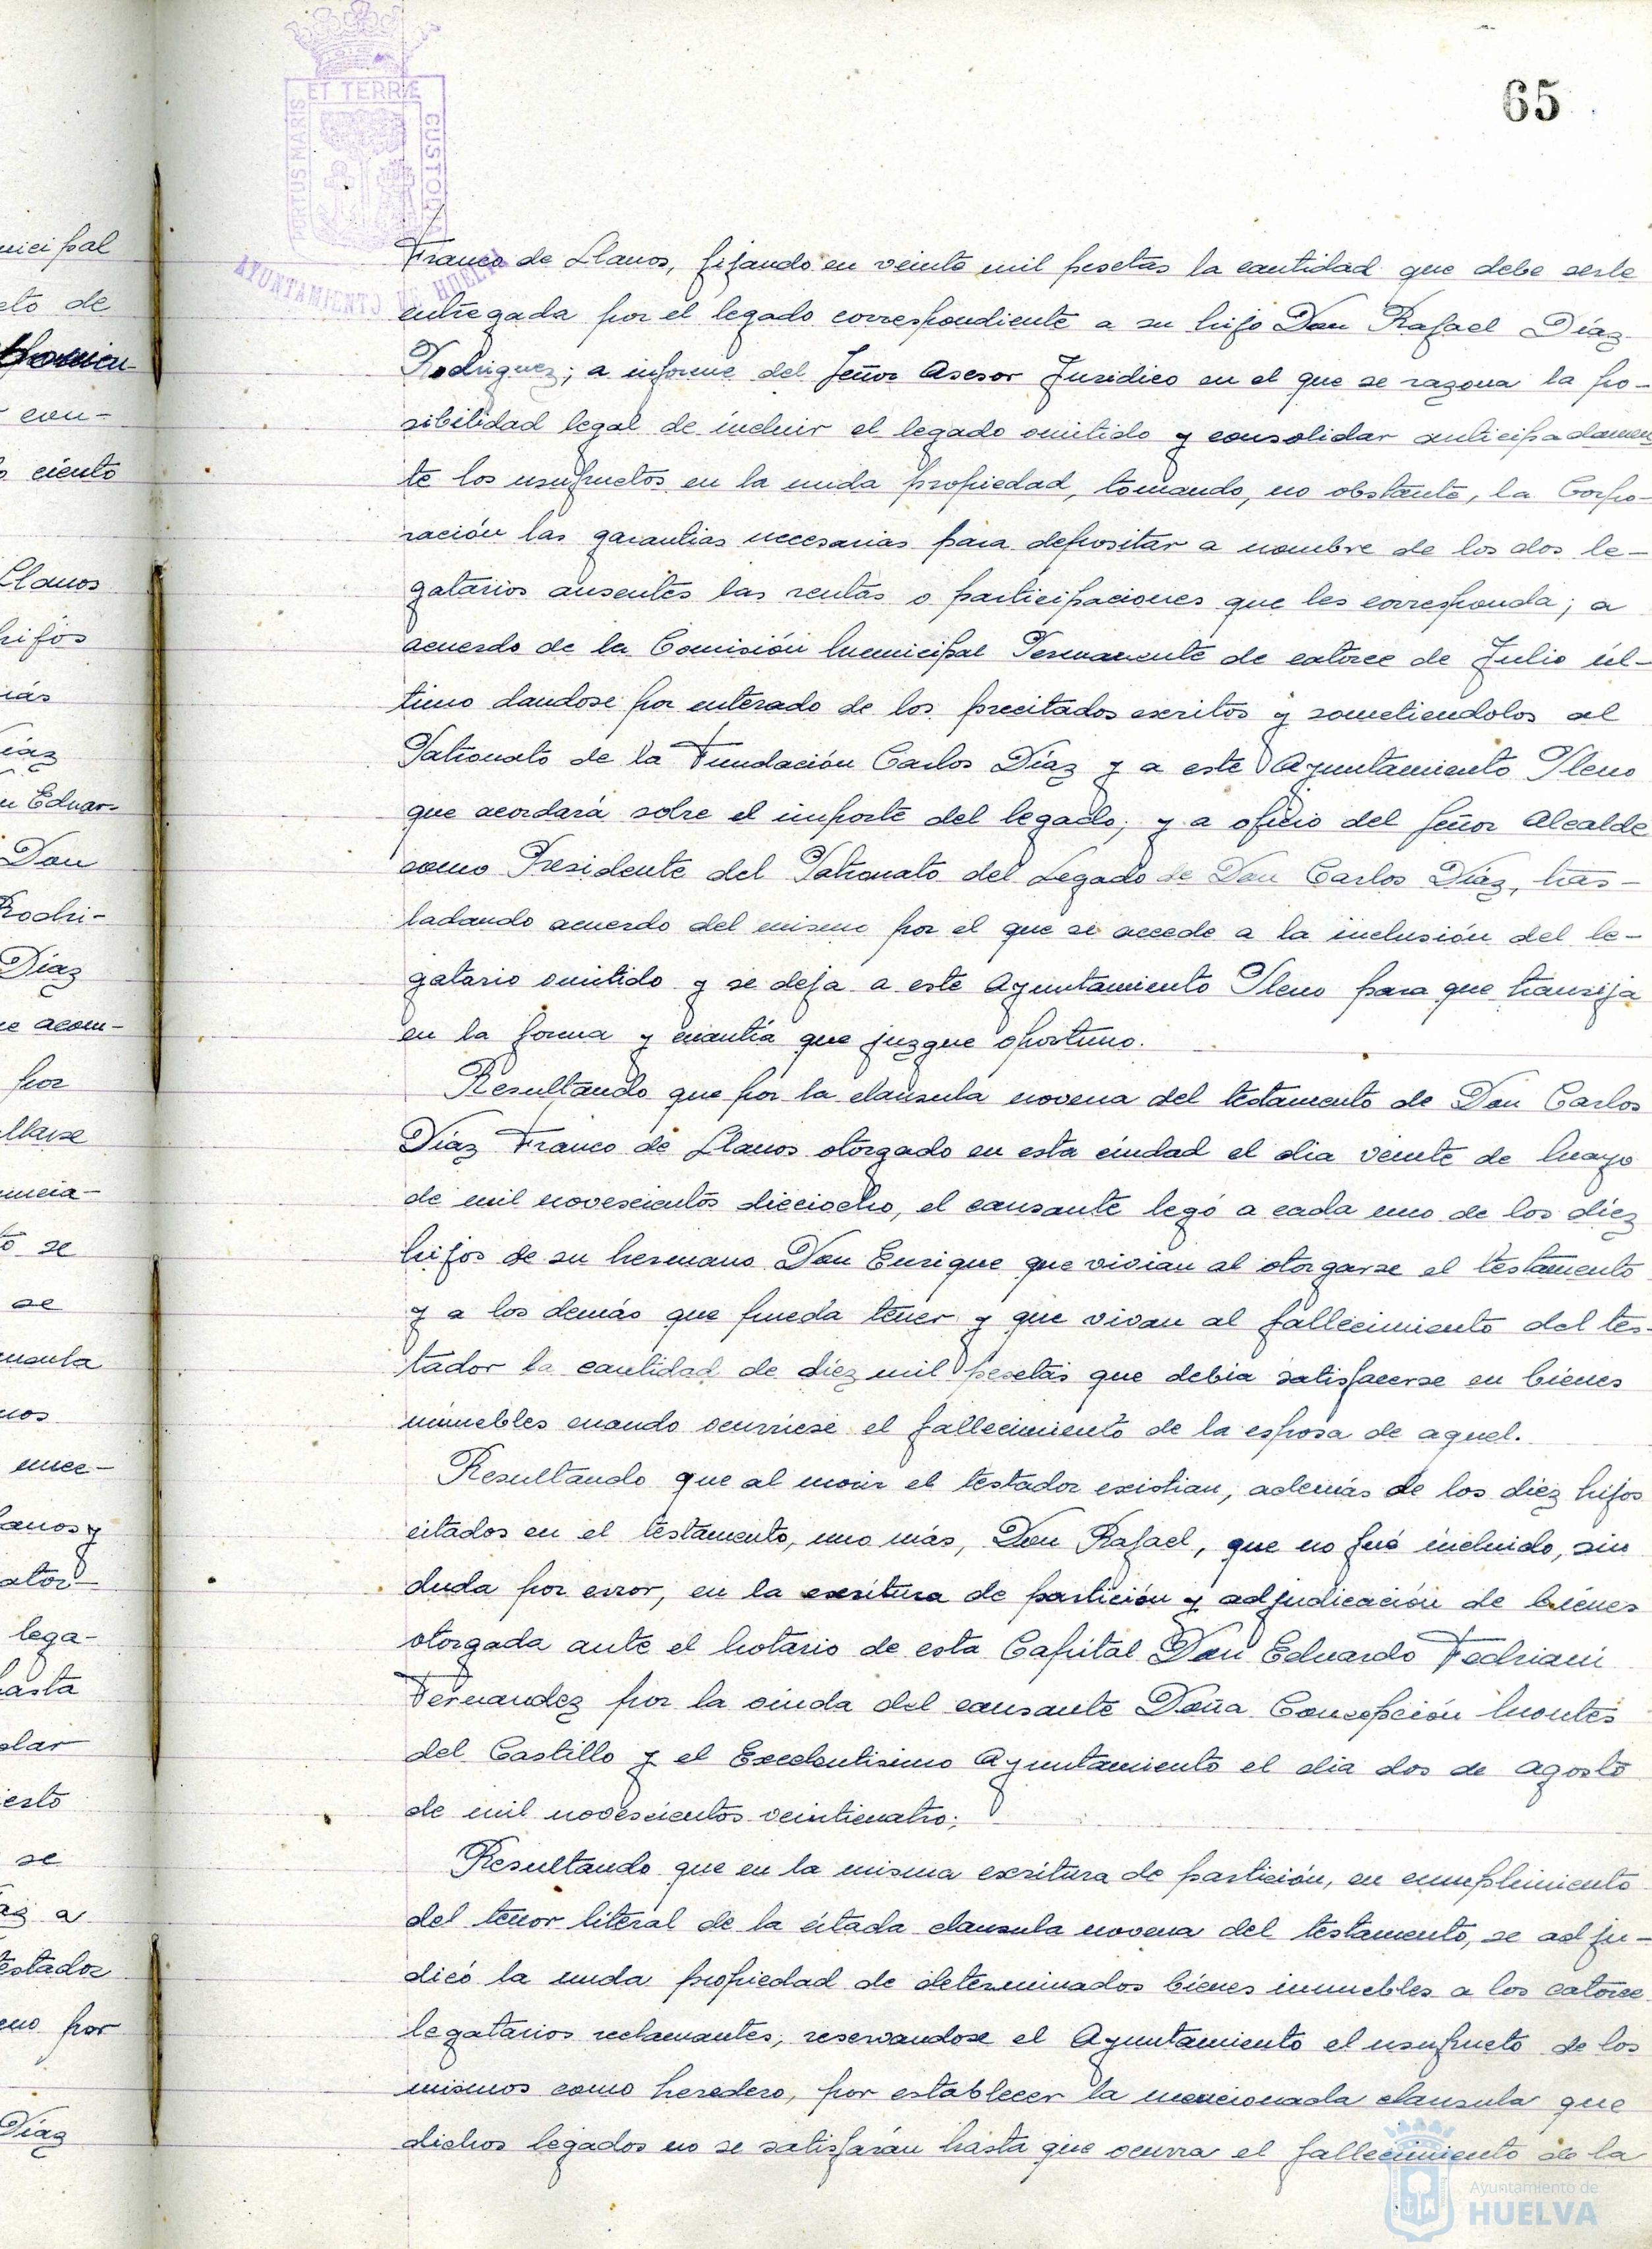 65
ET TERRÆ
PORTUS MARIS
CUSTODIA
AYUNTAMIENTO DE HUELVA
Franco de Llanos, fijando en veinte mil pesetas la cantidad que debe serle
entregada por el legado correspondiente a su hijo Don Rafael Díaz
Rodriguez; a informe del Señor Asesor Jurídico en el que se razona la po-
sibilidad legal de incluir el legado omitido y consolidar anticipadamen
te los usufructos en la nuda propiedad, tomando, no obstante, la Corpo-
ración las garantias necesarias para depositar a nombre de los dos le-
gatarios ausentes las rentas o participaciones que les corresponda; a
acuerdo de la Comisión Municipal Permanente de catorce de Julio úl-
timo dandose por enterado de los precitados escritos y sometiendolos al
Patronato de la Fundación Carlos Díaz y a este Ayuntamiento Pleno
que acordará sobre el importe del legado; y a oficio del Señor Alcalde
como Presidente del Patronato del Legado de Don Carlos Díaz, tras-
ladando acuerdo del mismo por el que se accede a la inclusión del le-
gatario omitido y se deja a este Ayuntamiento Pleno para que transija
en la forma y cuantía que juzgue oportuno.
Resultando que por la clausula novena del testamento de Don Carlos
Díaz Franco de Llanos otorgado en esta ciudad el dia veinte de Mayo
de mil novescientos dieciocho, el causante legó a cada uno de los diez
hijos de su hermano Don Enrique que vivian al otorgarse el testamento
y a los demás que pueda tener y que vivan al fallecimiento del tes-
tador la cantidad de diez mil pesetas que debia satisfacerse en bienes
inmuebles cuando ocurriese el fallecimiento de la esposa de aquel.
Resultando que al morir el testador existian, además de los diez hijos
citados en el testamento, uno más, Don Rafael, que no fué incluido, sin
duda por error, en la escritura de partición y adjudicación de bienes
otorgada ante el Notario de esta Capital Don Eduardo Fedriani
Fernandez por la viuda del causante Doña Concepción Montes
del Castillo y el Excelentisimo Ayuntamiento el dia dos de Agosto
de mil novescientos veinticuatro;
Resultando que en la misma escritura de partición, en cumplimiento
del tenor literal de la citada clausula novena del testamento, se adju-
dicó la nuda propiedad de determinados bienes inmuebles a los catorce
legatarios reclamantes, reservandose el Ayuntamiento el usufructo de los
mismos como heredero, por establecer la mencionada clausula que
dichos legados no se satisfarán hasta que ocurra el fallecimiento de la
nicipal
eto de
con-
ciento
Llanos
hijos
más
Díaz
n Eduar-
Don
Rodri-
Díaz
e acom-
por
llarse
uncia-
to se
se
nos
anos y
ator-
lega-
hasta
olar
esto
se
az a
testador
por
Díaz
Ayuntamiento de
HUELVA